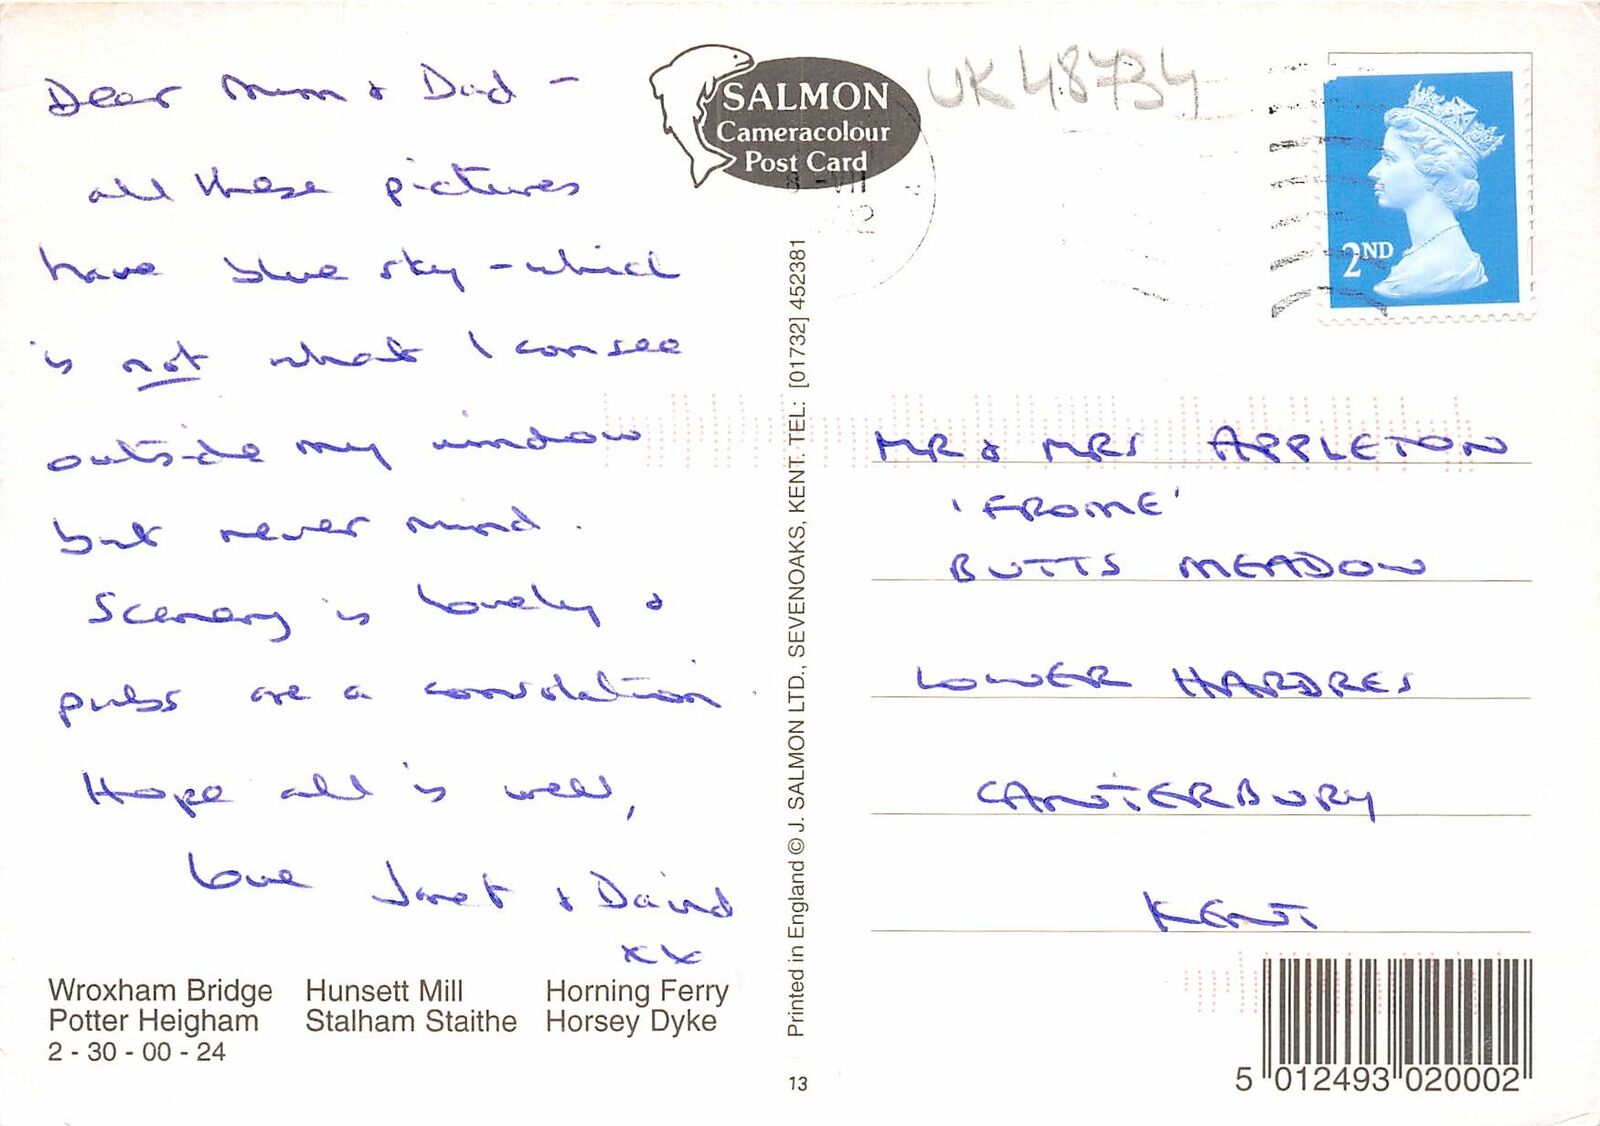 Dear Mum & Dad -
all these pictures
have blue sky - which
is not what I can see
outside my window
but never mind.
Scenery is lovely &
pubs are a consolation.
Hope all is well,
Love Janet & David
xx
Wroxham Bridge Hunsett Mill Horning Ferry
Potter Heigham Stalham Staithe Horsey Dyke
2 - 30 - 00 - 24
SALMON
Cameracolour
Post Card
8 - VII
Printed in England © J. SALMON LTD., SEVENOAKS, KENT. TEL: [01732] 452381
13
UK48734
2ND
MR & MRS APPLETON
'FROME'
BUTTS MEADOW
LOWER HARDRES
CANTERBURY
KENT
5 012493 020002